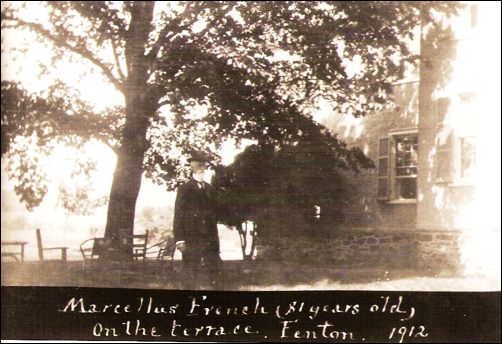 Marcellus French (81 years old)
On the terrace. Fenton. 1912